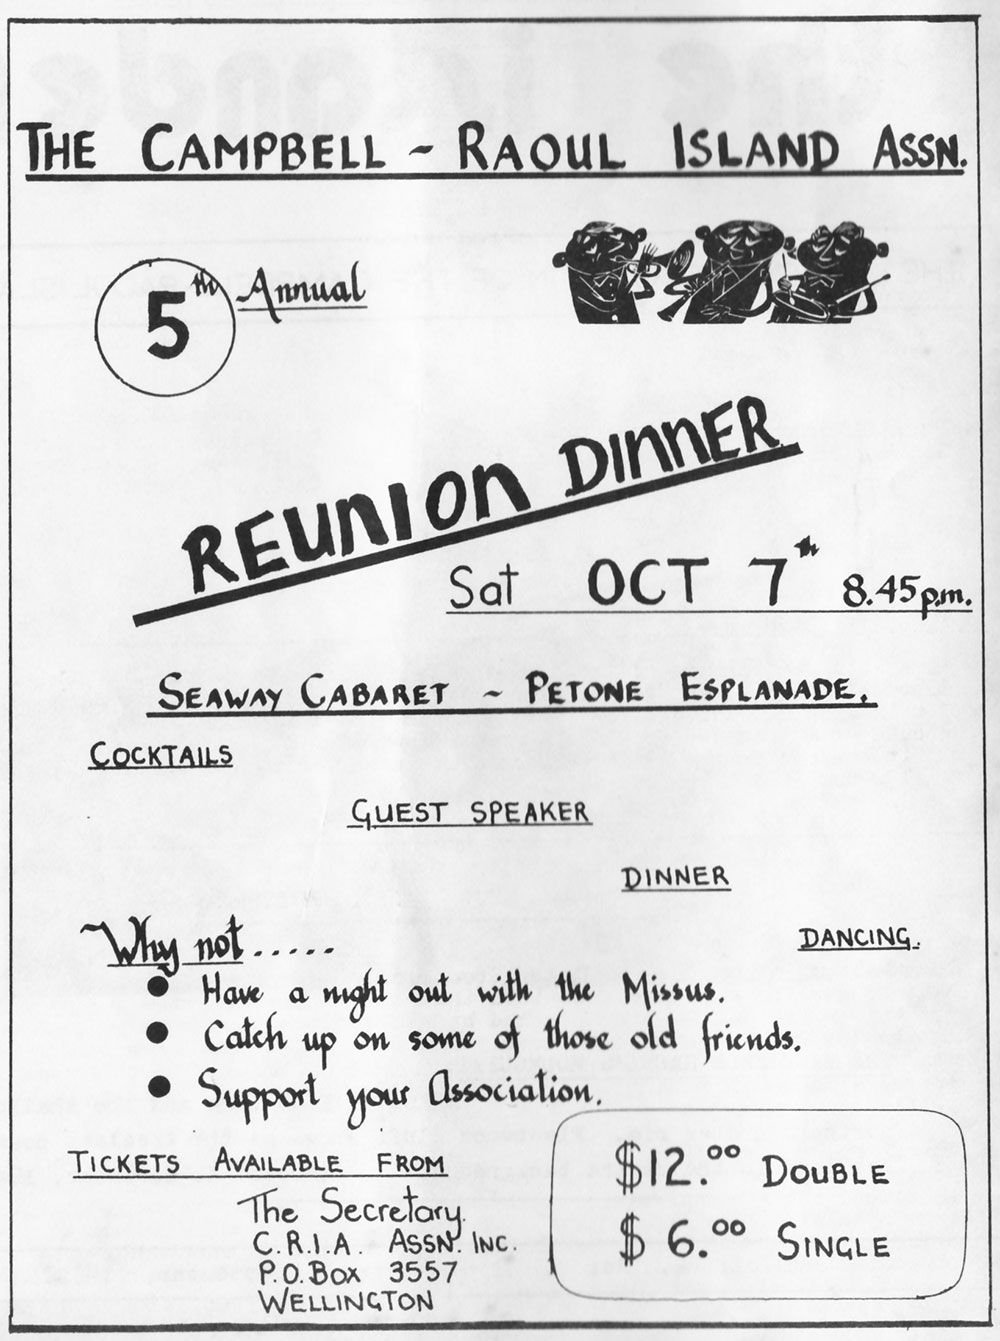 THE CAMPBELL ~ RAOUL ISLAND ASSN.
5th Annual
REUNION DINNER
Sat OCT 7th 8.45p.m.
SEAWAY CABARET ~ PETONE ESPLANADE.
COCKTAILS
GUEST SPEAKER
DINNER
DANCING.
Why not.....
● Have a night out with the Missus.
● Catch up on some of those old friends.
● Support your Association.
TICKETS AVAILABLE FROM
The Secretary.
C.R.I.A. ASSN. INC.
P.O. Box 3557
WELLINGTON
$12.00 DOUBLE
$6.00 SINGLE